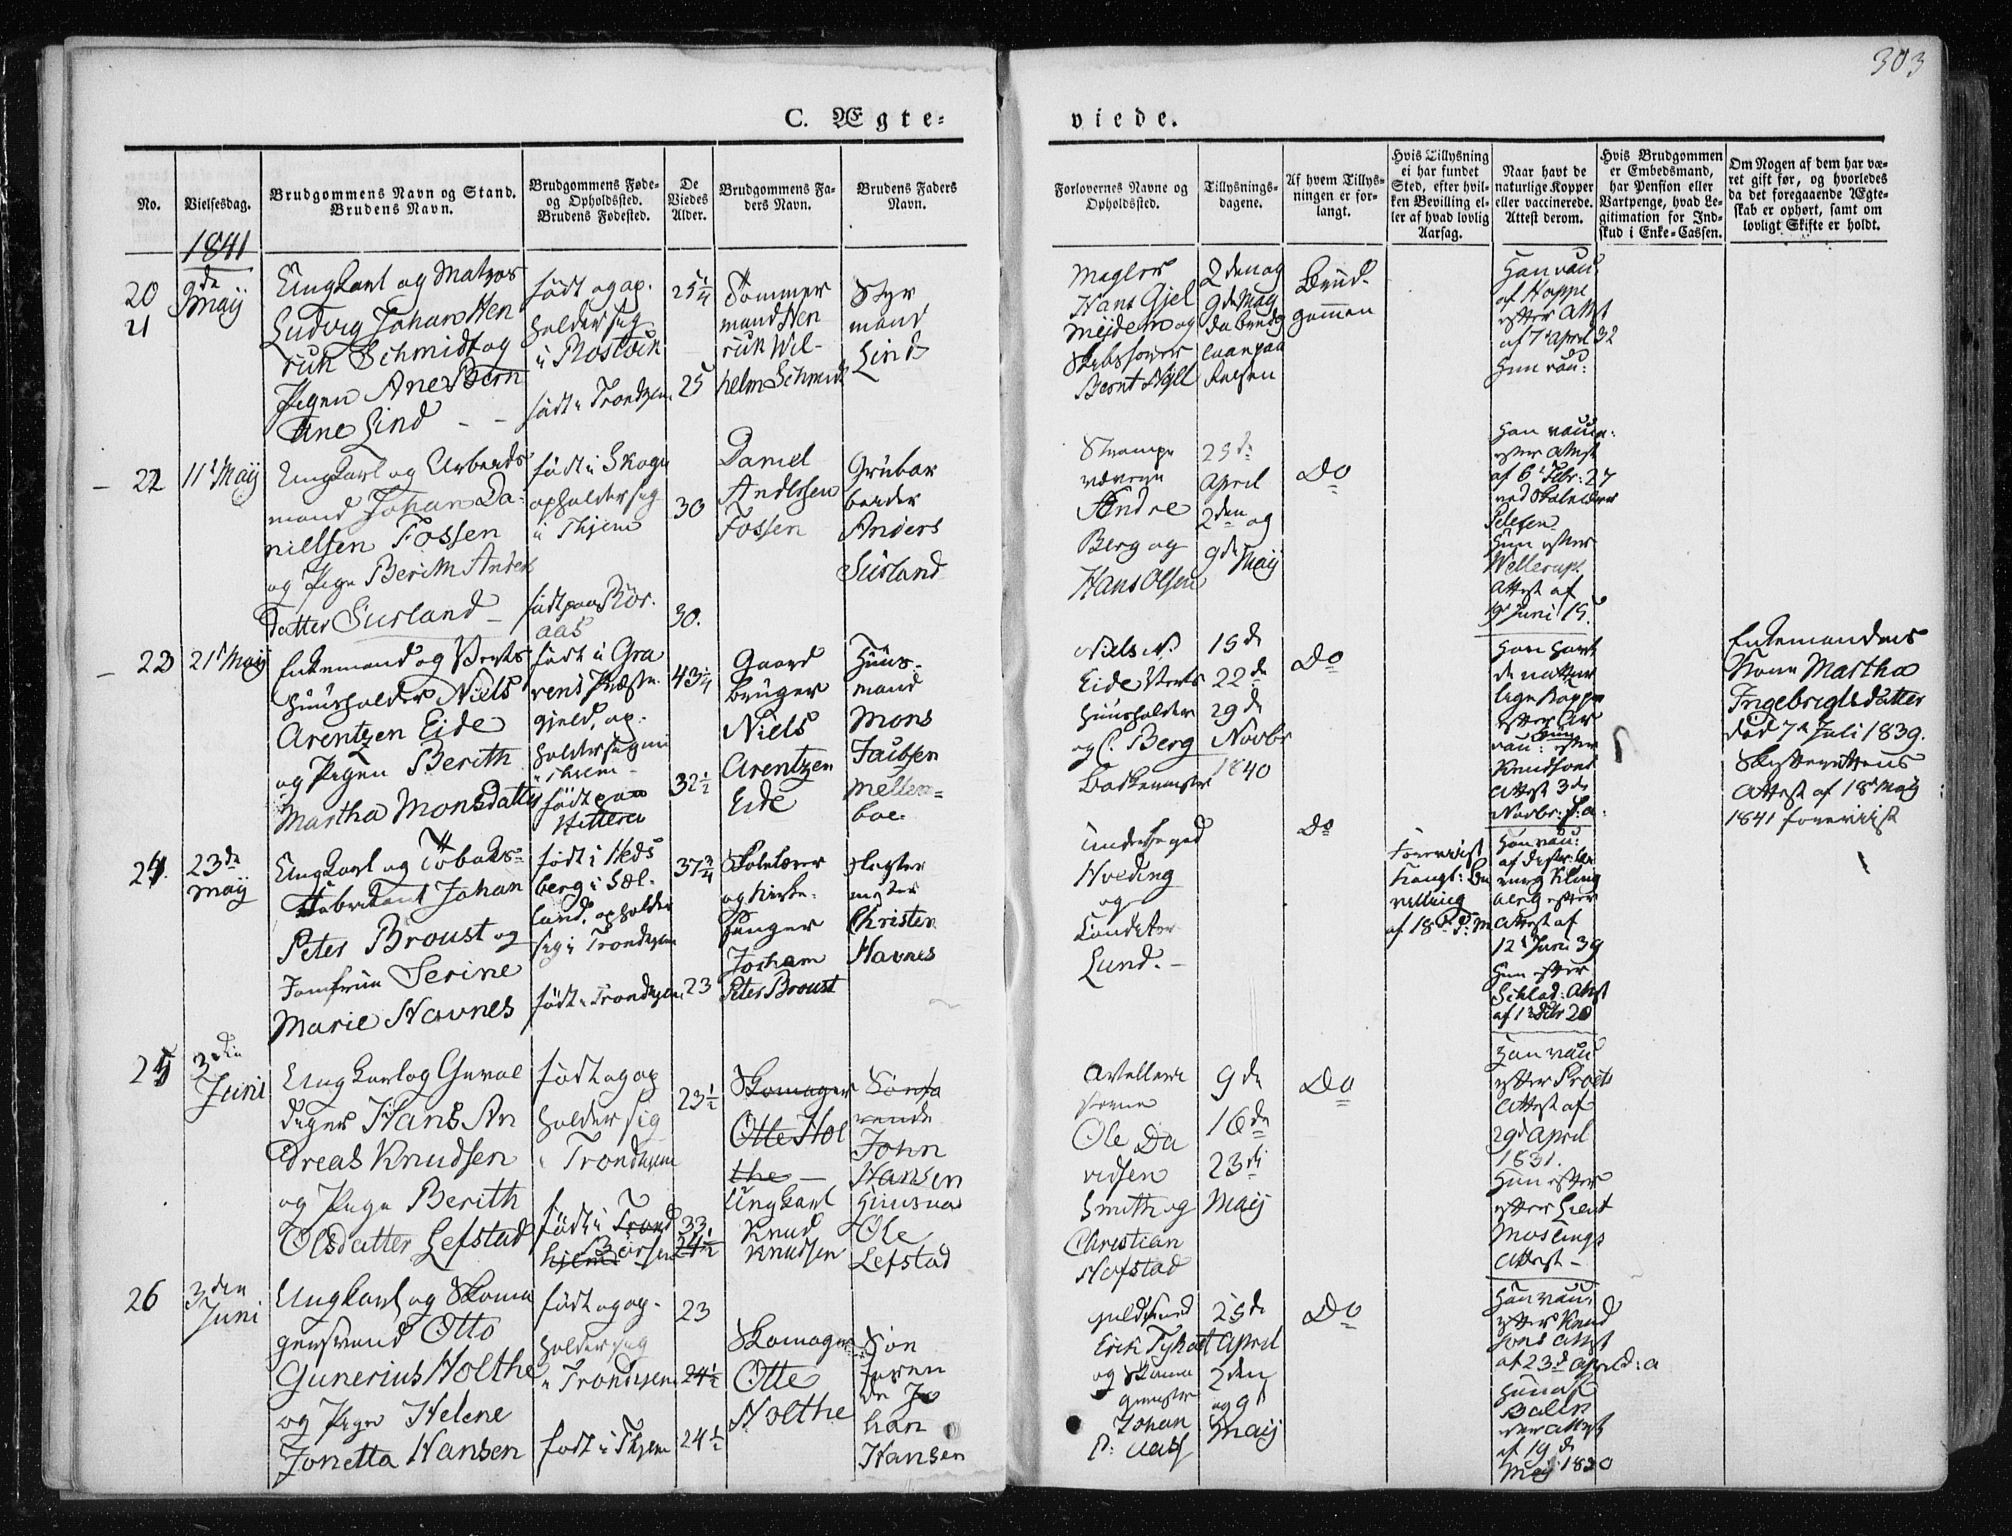 303
C. Ægte-
viede.
No.
Vielsesdag.
Brudgommens Navn og Stand.
Brudens Navn.
Brudgommens Føde-
og Opholdssted.
Brudens Fødested.
De
Viedes
Alder.
Brudgommens Fa-
ders Navn.
Brudens Faders
Navn.
Forlovernes Navne og
Opholdssted.
Tillysnings-
dagene.
Af hvem Tillys-
ningen er for-
langt.
Hvis Tillysning
ei har fundet
Sted, efter hvil-
ken Bevilling el-
ler af hvad lovlig
Aarsag.
Naar havt de
naturlige Kopper
eller vaccinerede.
Attest derom.
Hvis Brudgommen
er Embedsmand,
har Pension eller
Vartpenge, hvad Le-
gitimation for Ind-
skud i Enke-Cassen.
Om Nogen af dem har væ-
ret gift før, og hvorledes
da det foregaaende Ægte-
skab er ophørt, samt om
lovligt Skifte er holdt.
1841
20
21
9de
Maij
Ungkarl og Matros
Ludvig Johan Hen
rich Schmidt og
Pigen Ane Bern
tine Lind
født og op-
holder sig
i
født i Trondhjem
25¼
25
Tømmer
mand Hen
rich Wil-
helm Schmidt
Styr
mand
Lind
Mægler
Hans Gjel
Mejdem og
Bernt
2den og
9de Maij
Brud-
gommen
Han vac:
af Hoppe
efter Attst
af 7 April 32
Hun vac:
22
11t Maij
Ungkarl og Arbeids
mand Johan Da-
nielsen Fossen
og Pige Berith Anders
datter Surland
født i Skogn
opholder sig
i Thjem
født paa Rør-
aas
30
30.
Daniel
Andersen
Fossen
Grubar
beider
Anders
Surland
væver
Andre
Berg og
Hans Olsen
25de
April
2den og
9de Maij
Do
Han vacc:
efter Attst
af 6t Febr: 27
ved Skolelærer
Petersen
Hun efter
Wellerups
Attest af
19d Juni 15.
23
21t Maij
Enkemand og Verts
huusholder Niels
Arentzen Eide
og Pigen Berith
Martha Monsdatter
født i Gra
vens Præste
gjeld, op-
holder sig nu
i Thjem
født paa
Hitteren
43¼
32½
Gaard
bruger
Niels
Arentzen
Eide
Huus-
mand
Mons
Jacobsen
Mellem-
boe
Niels N.
Eide Verts
huusholder
og C. Berg
15de
22de
29de
Novbr
1840
Do
Han havt
de natur
lige Kopper
efter Ar
vac: Hun efter
Knudsons
Attest 3de
Novbr: f: a:
Enkemandens
Kone Martha
Ingebrigtsdatter
død 7de Juli 1839.
Skifterettens
Attest af 18de Maij
1841 foreviist
24.
23de
Maij
Ungkarl og Tobaks-
Fabrikant Johan
Peter Broust og
Jomfrue Serine
Marie Havnes
født i Heds
berg i Sæl-
land, opholder
sig i Trondhjem
født i Trondhjem
37¾
23
Skolelærer
og Kirke-
sanger
Jocham
Peter Broust
Slagter
mester
Christen
Havnes
Underfoged
Hveding
og
Conditor
Lund.
Do
Foreviist
Kongl: Be
villing
af 18d d: M
Han vac:
af Distr: læ
berg efter
Attest af
12t Juni 39
Hun efter
Schlad: Attst
af 13 Dcbr 20
25
3die
Juni
Ungkarl og Garve
Hans An
dreas Knudsen
og Pige Berith
Olsdatter Lefstad
født og op
holder sig
i Trondhjem
født i Trond
hjem Børsen
23½
33
24½
Skomager
Otte Hol
the
Ungkarl
Knud
Knudsen
Søefa
rende
John
Hansen
Huusm
Ole
Lefstad
Ole Da
vidsen
Smith og
Christian
Hofstad
9de
16de
23de
Maij
Do
Han vac
efter
Attest af
29d April
1831.
Hun efter
Moslings
Attest
26
3den
Juni
Ungkarl og Skoma
gersvend Otto
Gunerius Holthe
og Pige Helene
Jonetta Hansen
født og op-
holder sig
i Trondhjem
født i Thjem
23
24½
24½
Skomager
Otte
Holthe
Søe
faren
de Jo
han
Hansen
Guldsmed
Erik Tyholt
og Skoma
germester
Johan
P: Aas
25de
April
2den
og 9d
Maij
Do
Han vac:
efter Knud
sons Attst
af 23d April d: a
Hun af
Attest
af 19de
Maij 1820